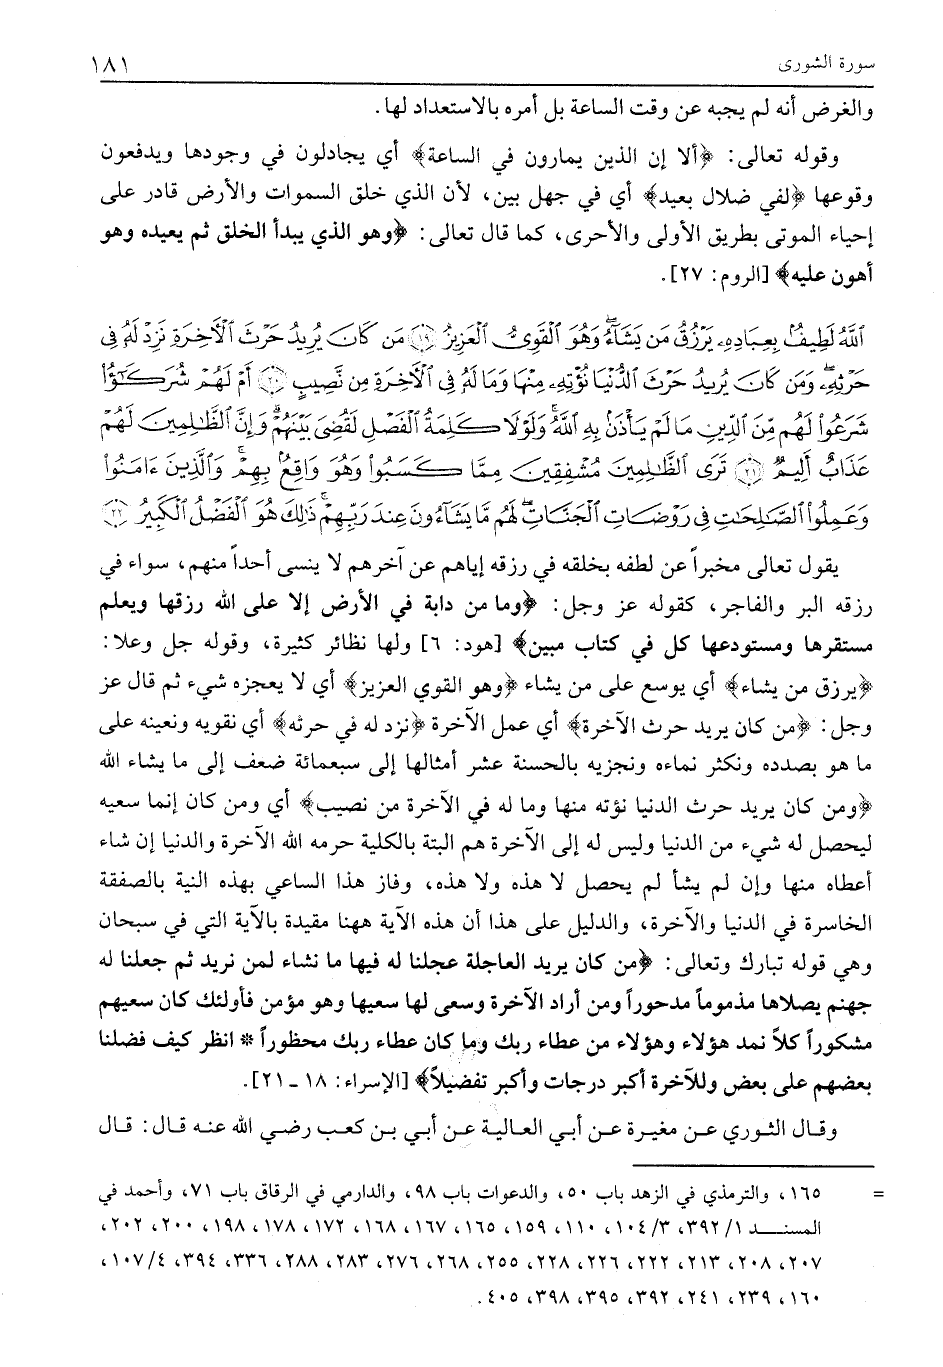 سورة الشورى ١٨١
والغرض أنه لم يجبه عن وقت الساعة بل أمره بالاستعداد لها.
وقوله تعالى: ﴿ألا إن الذين يمارون في الساعة﴾ أي يجادلون في وجودها ويدفعون
وقوعها ﴿لفي ضلال بعيد﴾ أي في جهل بين، لأن الذي خلق السموات والأرض قادر على
إحياء الموتى بطريق الأولى والأحرى، كما قال تعالى: ﴿وهو الذي يبدأ الخلق ثم يعيده وهو
أهون عليه﴾ [الروم: ٢٧].
ٱللَّهُ لَطِيفٌۢ بِعِبَادِهِۦ يَرْزُقُ مَن يَشَآءُ ۖ وَهُوَ ٱلْقَوِىُّ ٱلْعَزِيزُ ﴿١٩﴾ مَن كَانَ يُرِيدُ حَرْثَ ٱلْأَخِرَةِ نَزِدْ لَهُۥ فِى
حَرْثِهِۦ ۖ وَمَن كَانَ يُرِيدُ حَرْثَ ٱلدُّنْيَا نُؤْتِهِۦ مِنْهَا وَمَا لَهُۥ فِى ٱلْأَخِرَةِ مِن نَّصِيبٍ ﴿٢٠﴾ أَمْ لَهُمْ شُرَكَٰٓؤُا۟
شَرَعُوا۟ لَهُم مِّنَ ٱلدِّينِ مَا لَمْ يَأْذَنۢ بِهِ ٱللَّهُ ۚ وَلَوْلَا كَلِمَةُ ٱلْفَصْلِ لَقُضِىَ بَيْنَهُمْ ۗ وَإِنَّ ٱلظَّٰلِمِينَ لَهُمْ
عَذَابٌ أَلِيمٌ ﴿٢١﴾ تَرَى ٱلظَّٰلِمِينَ مُشْفِقِينَ مِمَّا كَسَبُوا۟ وَهُوَ وَاقِعٌۢ بِهِمْ ۗ وَٱلَّذِينَ ءَامَنُوا۟
وَعَمِلُوا۟ ٱلصَّٰلِحَٰتِ فِى رَوْضَاتِ ٱلْجَنَّاتِ ۖ لَهُم مَّا يَشَآءُونَ عِندَ رَبِّهِمْ ۚ ذَٰلِكَ هُوَ ٱلْفَضْلُ ٱلْكَبِيرُ ﴿٢٢﴾
يقول تعالى مخبراً عن لطفه بخلقه في رزقه إياهم عن آخرهم لا ينسى أحداً منهم، سواء في
رزقه البر والفاجر، كقوله عز وجل: ﴿وما من دابة في الأرض إلا على الله رزقها ويعلم
مستقرها ومستودعها كل في كتاب مبين﴾ [هود: ٦] ولها نظائر كثيرة، وقوله جل وعلا:
﴿يرزق من يشاء﴾ أي يوسع على من يشاء ﴿وهو القوي العزيز﴾ أي لا يعجزه شيء ثم قال عز
وجل: ﴿من كان يريد حرث الآخرة﴾ أي عمل الآخرة ﴿نزد له في حرثه﴾ أي نقويه ونعينه على
ما هو بصدده ونكثر نماءه ونجزيه بالحسنة عشر أمثالها إلى سبعمائة ضعف إلى ما يشاء الله
﴿ومن كان يريد حرث الدنيا نؤته منها وما له في الآخرة من نصيب﴾ أي ومن كان إنما سعيه
ليحصل له شيء من الدنيا وليس له إلى الآخرة هم البتة بالكلية حرمه الله الآخرة والدنيا إن شاء
أعطاه منها وإن لم يشأ لم يحصل لا هذه ولا هذه، وفاز هذا الساعي بهذه النية بالصفقة
الخاسرة في الدنيا والآخرة، والدليل على هذا أن هذه الآية ههنا مقيدة بالآية التي في سبحان
وهي قوله تبارك وتعالى: ﴿من كان يريد العاجلة عجلنا له فيها ما نشاء لمن نريد ثم جعلنا له
جهنم يصلاها مذموماً مدحوراً ومن أراد الآخرة وسعى لها سعيها وهو مؤمن فأولئك كان سعيهم
مشكوراً كلاً نمد هؤلاء وهؤلاء من عطاء ربك وما كان عطاء ربك محظوراً * انظر كيف فضلنا
بعضهم على بعض وللآخرة أكبر درجات وأكبر تفضيلاً﴾ [الإسراء: ١٨ - ٢١].
وقال الثوري عن مغيرة عن أبي العالية عن أبي بن كعب رضي الله عنه قال: قال
= ١٦٥، والترمذي في الزهد باب ٥٠، والدعوات باب ٩٨، والدارمي في الرقاق باب ٧١، وأحمد في
المسند ١/ ٣٩٢، ٣/ ١٠٤، ١١٠، ١٥٩، ١٦٥، ١٦٧، ١٦٨، ١٧٢، ١٧٨، ١٩٨، ٢٠٠، ٢٠٢،
٢٠٧، ٢٠٨، ٢١٣، ٢٢٢، ٢٢٦، ٢٢٨، ٢٥٥، ٢٦٨، ٢٧٦، ٢٨٣، ٢٨٨، ٣٣٦، ٣٩٤، ٤/ ١٠٧،
١٦٠، ٢٣٩، ٢٤١، ٣٩٢، ٣٩٥، ٣٩٨، ٤٠٥.